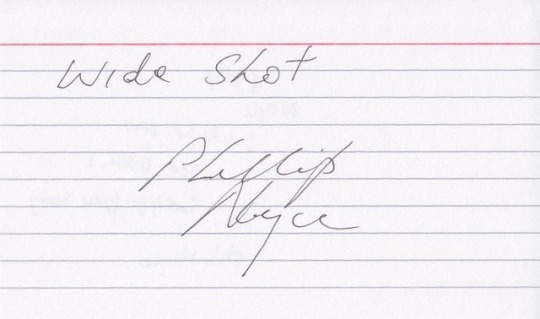 Wide Shot
Phillip
Noyce